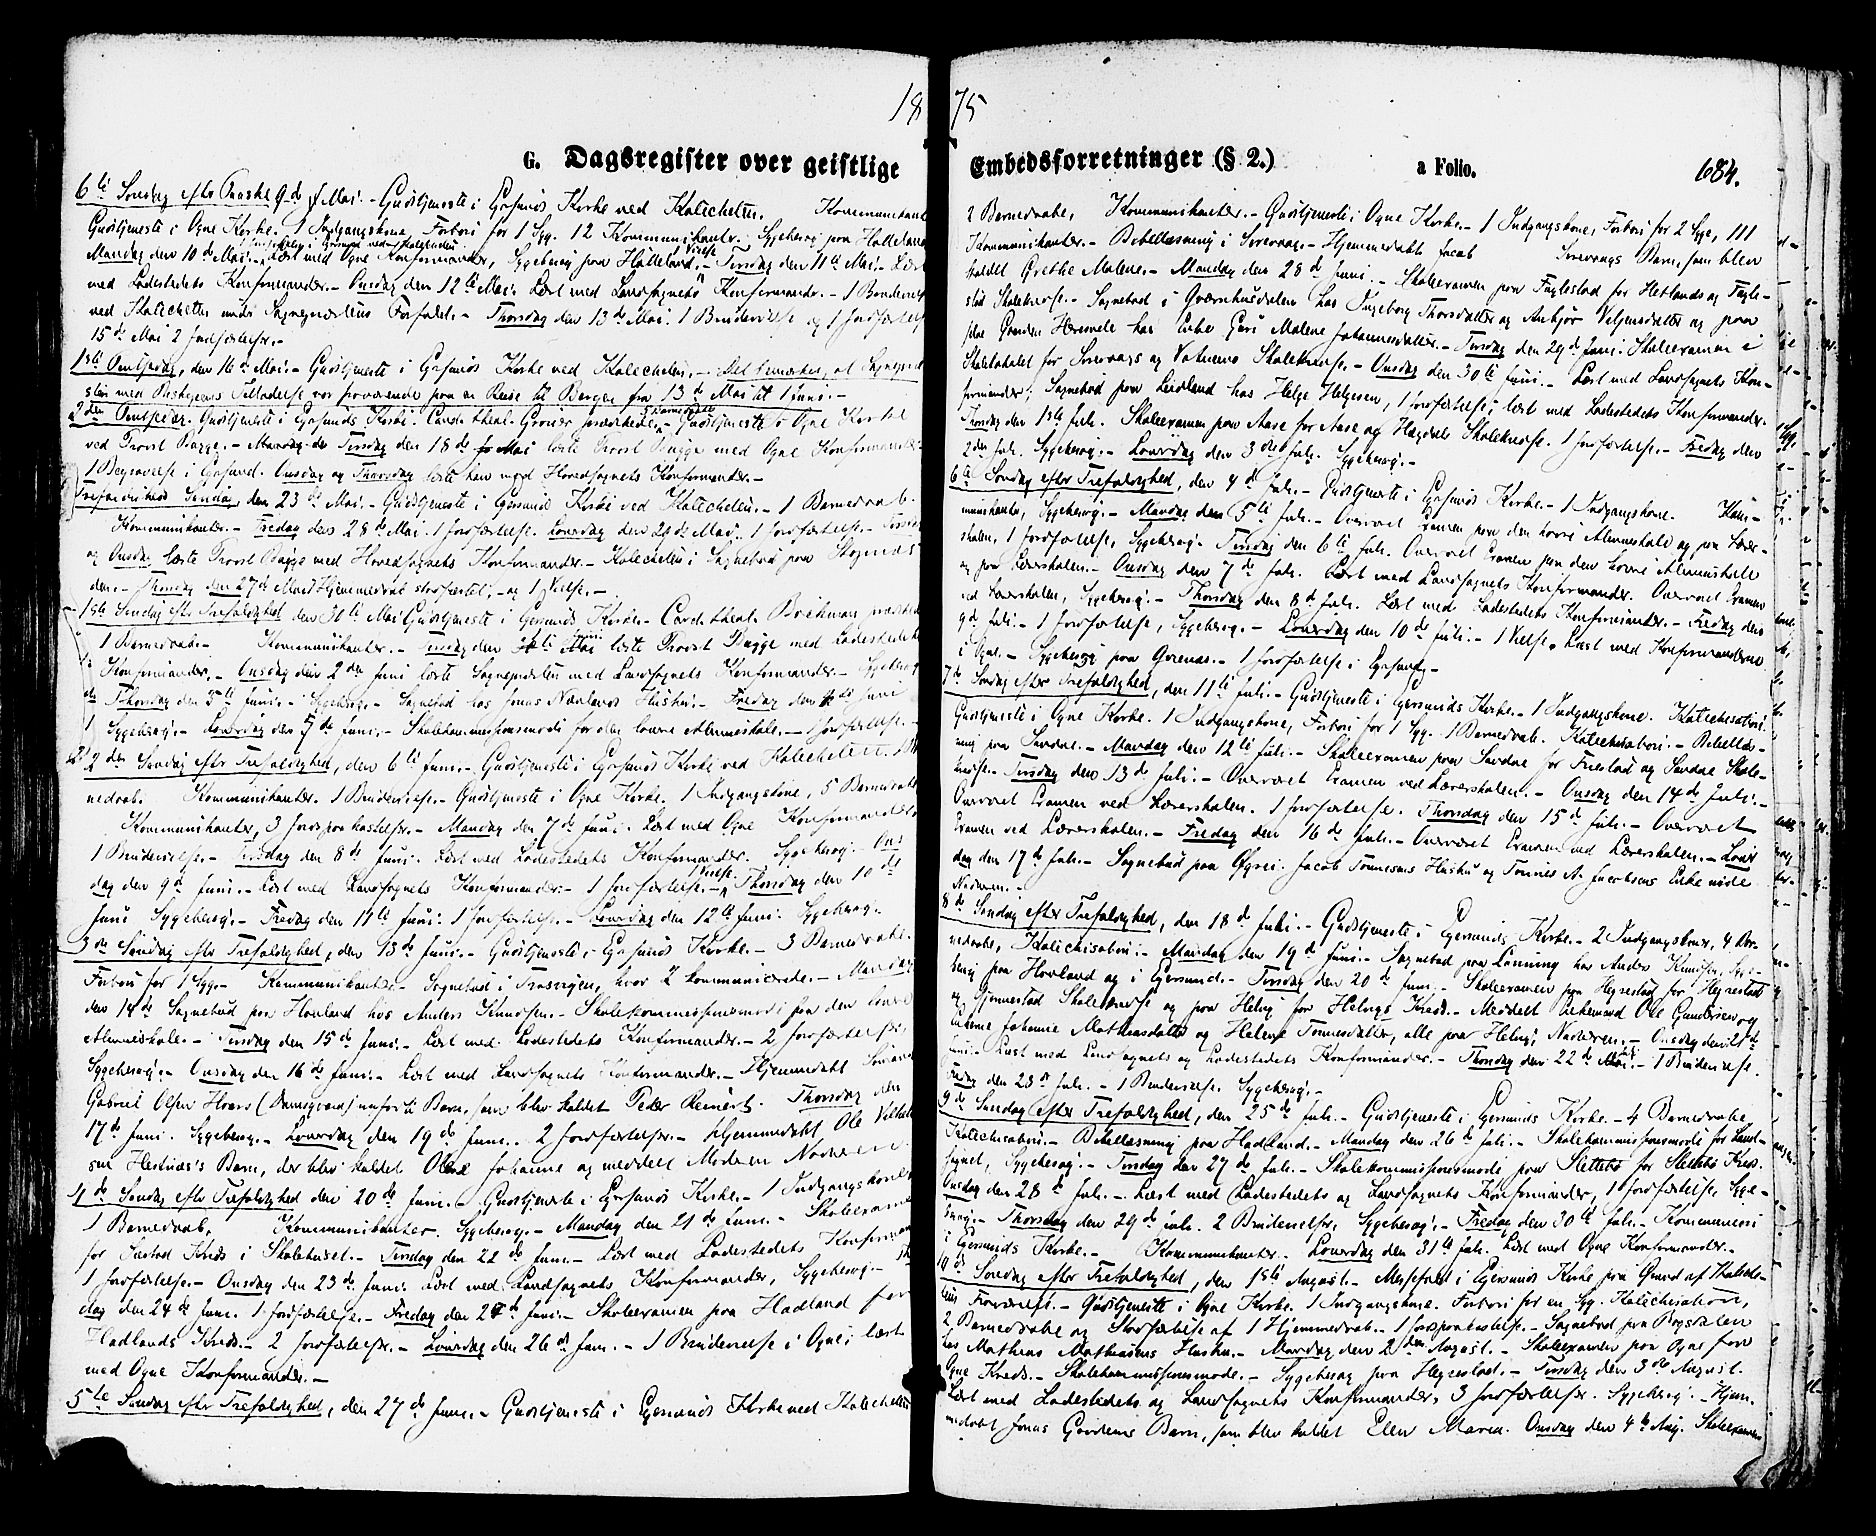 1875
G. Dagsregister over geistlige Embedsforretninger (§ 2.) a Folio. 684.
6te Søndag efter Paaske 9de Mai. - Gudstjeneste i Egersunds Kirke ved Katecheten. Kommunikant
Gudstjeneste i Ogne Kirke. 1 Indgangskone, Forbøn for 1 Syg. 12 Kommunikanter. Sygebesøg paa Halleland
Mandag den 10de Mai. Læst med Ogne Konfirmander, Sygebesøg paa Halleland. - Tirsdag den 11te Mai. - Læst
med Ladestedets Konfirmander. - Onsdag den 12te Mai. Læst med Landsognets Konfirmander. - 1 Brudevielse
ved Katecheten under Sognepræstens Forfald. - Thorsdag den 13de Mai. 1 Brudevielse og 1 Jordfæstelse
15de Mai 2 Jordfæstelser. -
1ste Pintsedag, den 16de Mai. - Gudstjeneste i Egersunds Kirke ved Katecheten. - Det bemærkes, at Sognepræ
sten med Biskopens Tilladelse var fraværende paa en Reise til Bergen fra 13de Mai til 1 Juni. -
2den Pintsedag. Gudstjeneste i Egersunds Kirke. Cand. theol. prædikede. - Gudstjeneste i Ogne Kirke
ved Provst Bugge. - Tirsdag den 18de Mai læste Provst Bugge med Ogne Konfirmander
1 Begravelse i Egersund. Onsdag og Thorsdag læste han med Hovedsognets Konfirmander. -
Trefoldigheds Søndag, den 23de Mai. - Gudstjeneste i Egersunds Kirke ved Katecheten. - 1 Barnedaab.
Kommunikanter. - Fredag den 28de Mai. 1 Jordfæstelse. Lørdag den 29de Mai. 1 Jordfæstelse. - Tirsdag
og Onsdag læste Provst Bugge med Hovedsognets Konfirmander. - Katecheten i Sognebud paa
den. - Thorsdag den 27de Mai Hjemmedaab stadfæstet, - og 1 Vielse. -
1ste Søndag efter Trefoldighed den 30te Mai Gudstjeneste i Egersunds Kirke. - Cand. theol. prædikede
1 Barnedaab. - Kommunikanter. - Tirsdag den læste Provst Bugge med Ladestedets
Konfirmander. - Onsdag den 2den Juni læste Sognepræsten med Landsognets Konfirmander. - Sygebesøg
Thorsdag den 3die Juni. - Sygebesøg. - Sognebud hos Jonas Hustru. - Fredag den 4de Juni
1 Sygebesøg. - Lørdag den 5de Juni. - Skolekommissionsmøde for den lavere Almueskole. - 1 Jordfæstelse. -
2den Søndag efter Trefoldighed, den 6te Juni. - Gudstjeneste i Egersunds Kirke ved Katecheten. 1 Bar
nedaab. Kommunikanter. 1 Brudevielse. - Gudstjeneste i Ogne Kirke. 1 Indgangskone, 5 Barnedaab
Kommunikanter, 3 Jordpaakastelser. - Mandag den 7de Juni. Læst med Ogne Konfirmander
1 Brudevielse. - Tirsdag den 8de Juni. Læst med Ladestedets Konfirmander. Sygebesøg. Ons
dag den 9de Juni. - Læst med Landsognets Konfirmander. - 1 Jordfæstelse. - 1 Vielse. Thorsdag den 10de
Juni Sygebesøg. - Fredag den 11te Juni. 1 Jordfæstelse. - Lørdag den 12te Juni. Sygebesøg. -
3die Søndag efter Trefoldighed, den 13de Juni. - Gudstjeneste i Egersunds Kirke. - 3 Barnedaab.
Forbøn for 1 Syg. - Kommunikanter. - Sognebud i , hvor 2 kommunicerede. - Mandag
den 14de Sognebud paa Hovland hos Anders Knudsen. - Skolekommissionsmøde for den lavere
Almueskole. - Tirsdag den 15de Juni. - Læst med Ladestedets Konfirmander. - 2 Jordfæstelser,
Sygebesøg. - Onsdag den 16de Juni. - Læst med Landsognets Konfirmander. - Hjemmedøbt
Gabriel Olsen Barn, som blev kaldet Peder Reinert. Thorsdag den
17de Juni. Sygebesøg. - Lørdag den 19de Juni. 2 Jordfæstelser. - Hjemmedøbt Ole
sen Barn, der blev kaldet Johanne og meddelt Moderen Nadveren. -
4de Søndag efter Trefoldighed den 20de Juni. - Gudstjeneste i Egersunds Kirke. - 1 Indgangskone
1 Barnedaab, Kommunikanter. Sygebesøg. - Mandag den 21de Juni. - Skoleexamen
for Kreds i Skolehuset. - Tirsdag den 22de Juni. - Læst med Ladestedets Konfirman
1 Jordfæstelse. - Onsdag den 23de Juni. Læst med Landsognets Konfirmander, Sygebesøg. -
dag den 24de Juni. 1 Jordfæstelse. - Fredag den 25de Juni. - Skoleexamen paa Hadland for
Hadlands Kreds. - 2 Jordfæstelser. - Lørdag den 26de Juni. - 1 Brudevielse i Ogne, læst
med Ogne Konfirmander. -
5te Søndag efter Trefoldighed, den 27de Juni. - Gudstjeneste i Egersunds Kirke ved Katecheten
2 Barnedaab, Kommunikanter. - Gudstjeneste i Ogne Kirke. - 1 Indgangskone, Forbøn for 2 Syge, 111
Kommunikanter. - Bibellæsning i Sirevaag. - Hjemmedøbt Jacob Sirevaags Barn, som blev
kaldet Grethe Malene. - Mandag den 28de Juni. - Skoleexamen paa Fuglestad for Hetlands og Fugle-
stad Skolekredse. - Sognebud i Qværnhusdalen hos Ingeborg Thorsdatter og Anbjør og paa
hos Enke Malene Johannesdatter. - Tirsdag den 29de Juni. Skoleexamen i
Skolelokalet for Sirevaags og Vatnemo Skolekredse. - Onsdag den 30te Juni. - Læst med Landsognets Kon-
firmander; Sognebud paa Leidland hos Helge Helgesen, 1 Jordfæstelse; læst med Ladestedets Konfirmander.
Thorsdag den 1ste Juli. Skoleexamen paa Aase for Aase og Hægdal Skolekredse. 1 Jordfæstelse. - Fredag den
2den Juli. Sygebesøg. - Lørdag den 3die Juli. Sygebesøg. -
6te Søndag efter Trefoldighed, den 4de Juli. - Gudstjeneste i Egersunds Kirke. - 1 Indgangskone. Kom-
munikanter, Sygebesøg. - Mandag den 5te Juli. - Overværet Examen paa den lavere Almueskole og paa Lærer-
skolen, 1 Jordfæstelse, Sygebesøg. Tirsdag den 6te Juli. Overværet Examen paa den lavere Almueskole
og paa Lærerskolen. - Onsdag den 7de Juli. Læst med Landsognets Konfirmander. Overværet Examen
ved Lærerskolen, Sygebesøg. - Thorsdag den 8de Juli. Læst med Ladestedets Konfirmander. - Fredag den
9de Juli. - 1 Jordfæstelse, Sygebesøg. - Lørdag den 10de Juli. - 1 Vielse. Læst med Konfirmanderne
i Ogne. - Sygebesøg paa - 1 Jordfæstelse i Egersund. -
7de Søndag efter Trefoldighed, den 11te Juli. - Gudstjeneste i Egersunds Kirke. - 1 Indgangskone. Katechisation.
Gudstjeneste i Ogne Kirke. 1 Indgangskone, Forbøn for 1 Syg. 1 Barnedaab. Katechisation. - Bibellæs-
ning paa - Mandag den 12te Juli. - Skoleexamen paa for og Skole-
kredse. - Tirsdag den 13de Juli. - Overværet Examen ved Lærerskolen. - Onsdag den 14de Juli. -
Overværet Examen ved Lærerskolen. 1 Jordfæstelse. Thorsdag den 15de Juli. - Overværet
Examen ved Lærerskolen. - Fredag den 16de Juli. - Overværet Examen ved Lærerskolen. - Lør
dag den 17de Juli. - Sognebud paa Jacob Tønnesens Hustru og Tønnes A. Jacobsens Enke nøde
Nadveren. -
8de Søndag efter Trefoldighed, den 18de Juli. - Gudstjeneste i Egersunds Kirke. - 2 Indgangskoner, 4 Bar-
nedaab, Katechisation. - Mandag den 19de Juni. - Sognebud paa hos Anders Knudsen, Syge-
besøg paa Hovland og i Egersund. - Tirsdag den 20de Juni. Skoleexamen paa Hegrestad for Hegrestad
og Gjermestad Skolekredse og paa Helvig for Helvigs Kreds. - Meddelt Enkemand Ole Gundersen og
Enkerne Johanne Mathiasdatter og Helene Tønnesdatter, alle paa Helvig, Nadveren. - Onsdag den 21de
Juni. - Læst med Landsognets og Ladestedets Konfirmander. - Thorsdag den 22de - 1 Brudevielse.
Fredag den 23de Juli. - 1 Brudevielse. Sygebesøg. -
9de Søndag efter Trefoldighed, den 25de Juli. - Gudstjeneste i Egersunds Kirke. - 4 Barnedaab
Katechisation. - Bibellæsning paa Hadland. - Mandag den 26de Juli. - Skolekommissionsmøde for Land-
sognet, Sygebesøg. - Tirsdag den 27de Juli. - Skolekommissionsmøde paa Slettebø for Slettebø Kreds.
Onsdag den 28de Juli. - Læst med Ladestedets og Landsognets Konfirmander, 1 Jordfæstelse, Syge-
besøg. - Thorsdag den 29de Juli. 2 Brudevielser, Sygebesøg. - Fredag den 30te Juli. - Kommunion
i Egersunds Kirke. - Kommunikanter. Lørdag den 31te Juli. Læst med Ogne Konfirmander. -
10de Søndag efter Trefoldighed, den 1ste August. - Messefald i Egersunds Kirke paa Grund af Kateche-
tens Fravær. - Gudstjeneste i Ogne Kirke. 1 Indgangskone. Forbøn for en Syg. Katechisation,
2 Barnedaab og Stadfæstelse af 1 Hjemmedaab. - 1 Jordpaakastelse. - Sognebud paa
hos Mathias Mathiasens Hustru. - Mandag den 2den August. - Skoleexamen paa Ogne for
Ogne Kreds. - Skolekommissionsmøde. - Sygebesøg paa Hegrestad. - Tirsdag den 3die August.
Læst med Ladestedets og Landsognets Konfirmander, 3 Jordfæstelser. Sygebesøg. - Hjem-
medøbt Jonas Barn, som blev kaldet Ellen Maria. Onsdag den 4de Aug. Skoleexamen